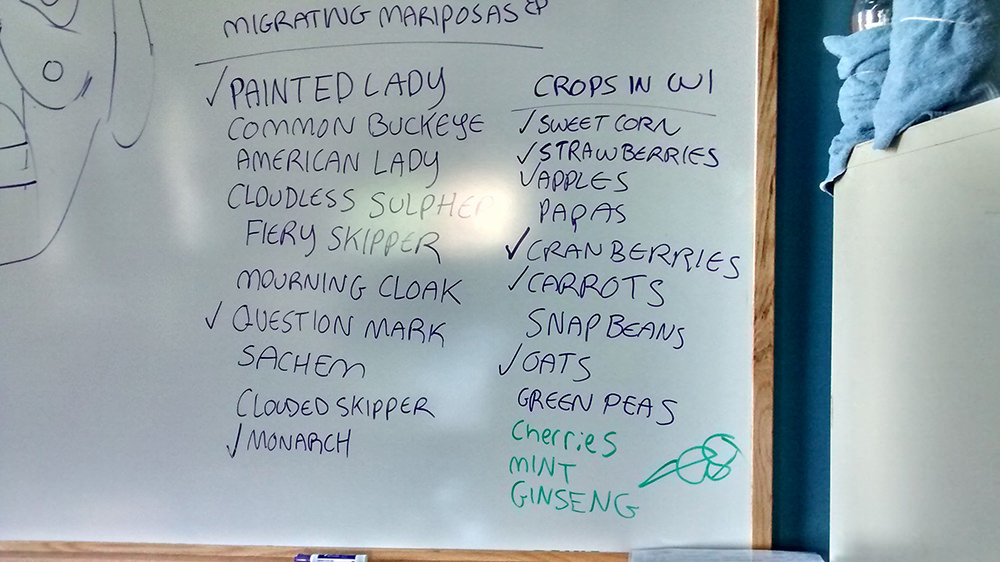 MIGRATING MARIPOSAS
✓ PAINTED LADY
COMMON BUCKEYE
AMERICAN LADY
CLOUDLESS SULPHER
FIERY SKIPPER
MOURNING CLOAK
✓ QUESTION MARK
SACHEM
CLOUDED SKIPPER
✓ MONARCH
CROPS IN WI
✓ SWEET CORN
✓ STRAWBERRIES
✓ APPLES
PAPAS
✓ CRANBERRIES
✓ CARROTS
SNAP BEANS
✓ OATS
GREEN PEAS
Cherries
MINT
GINSENG